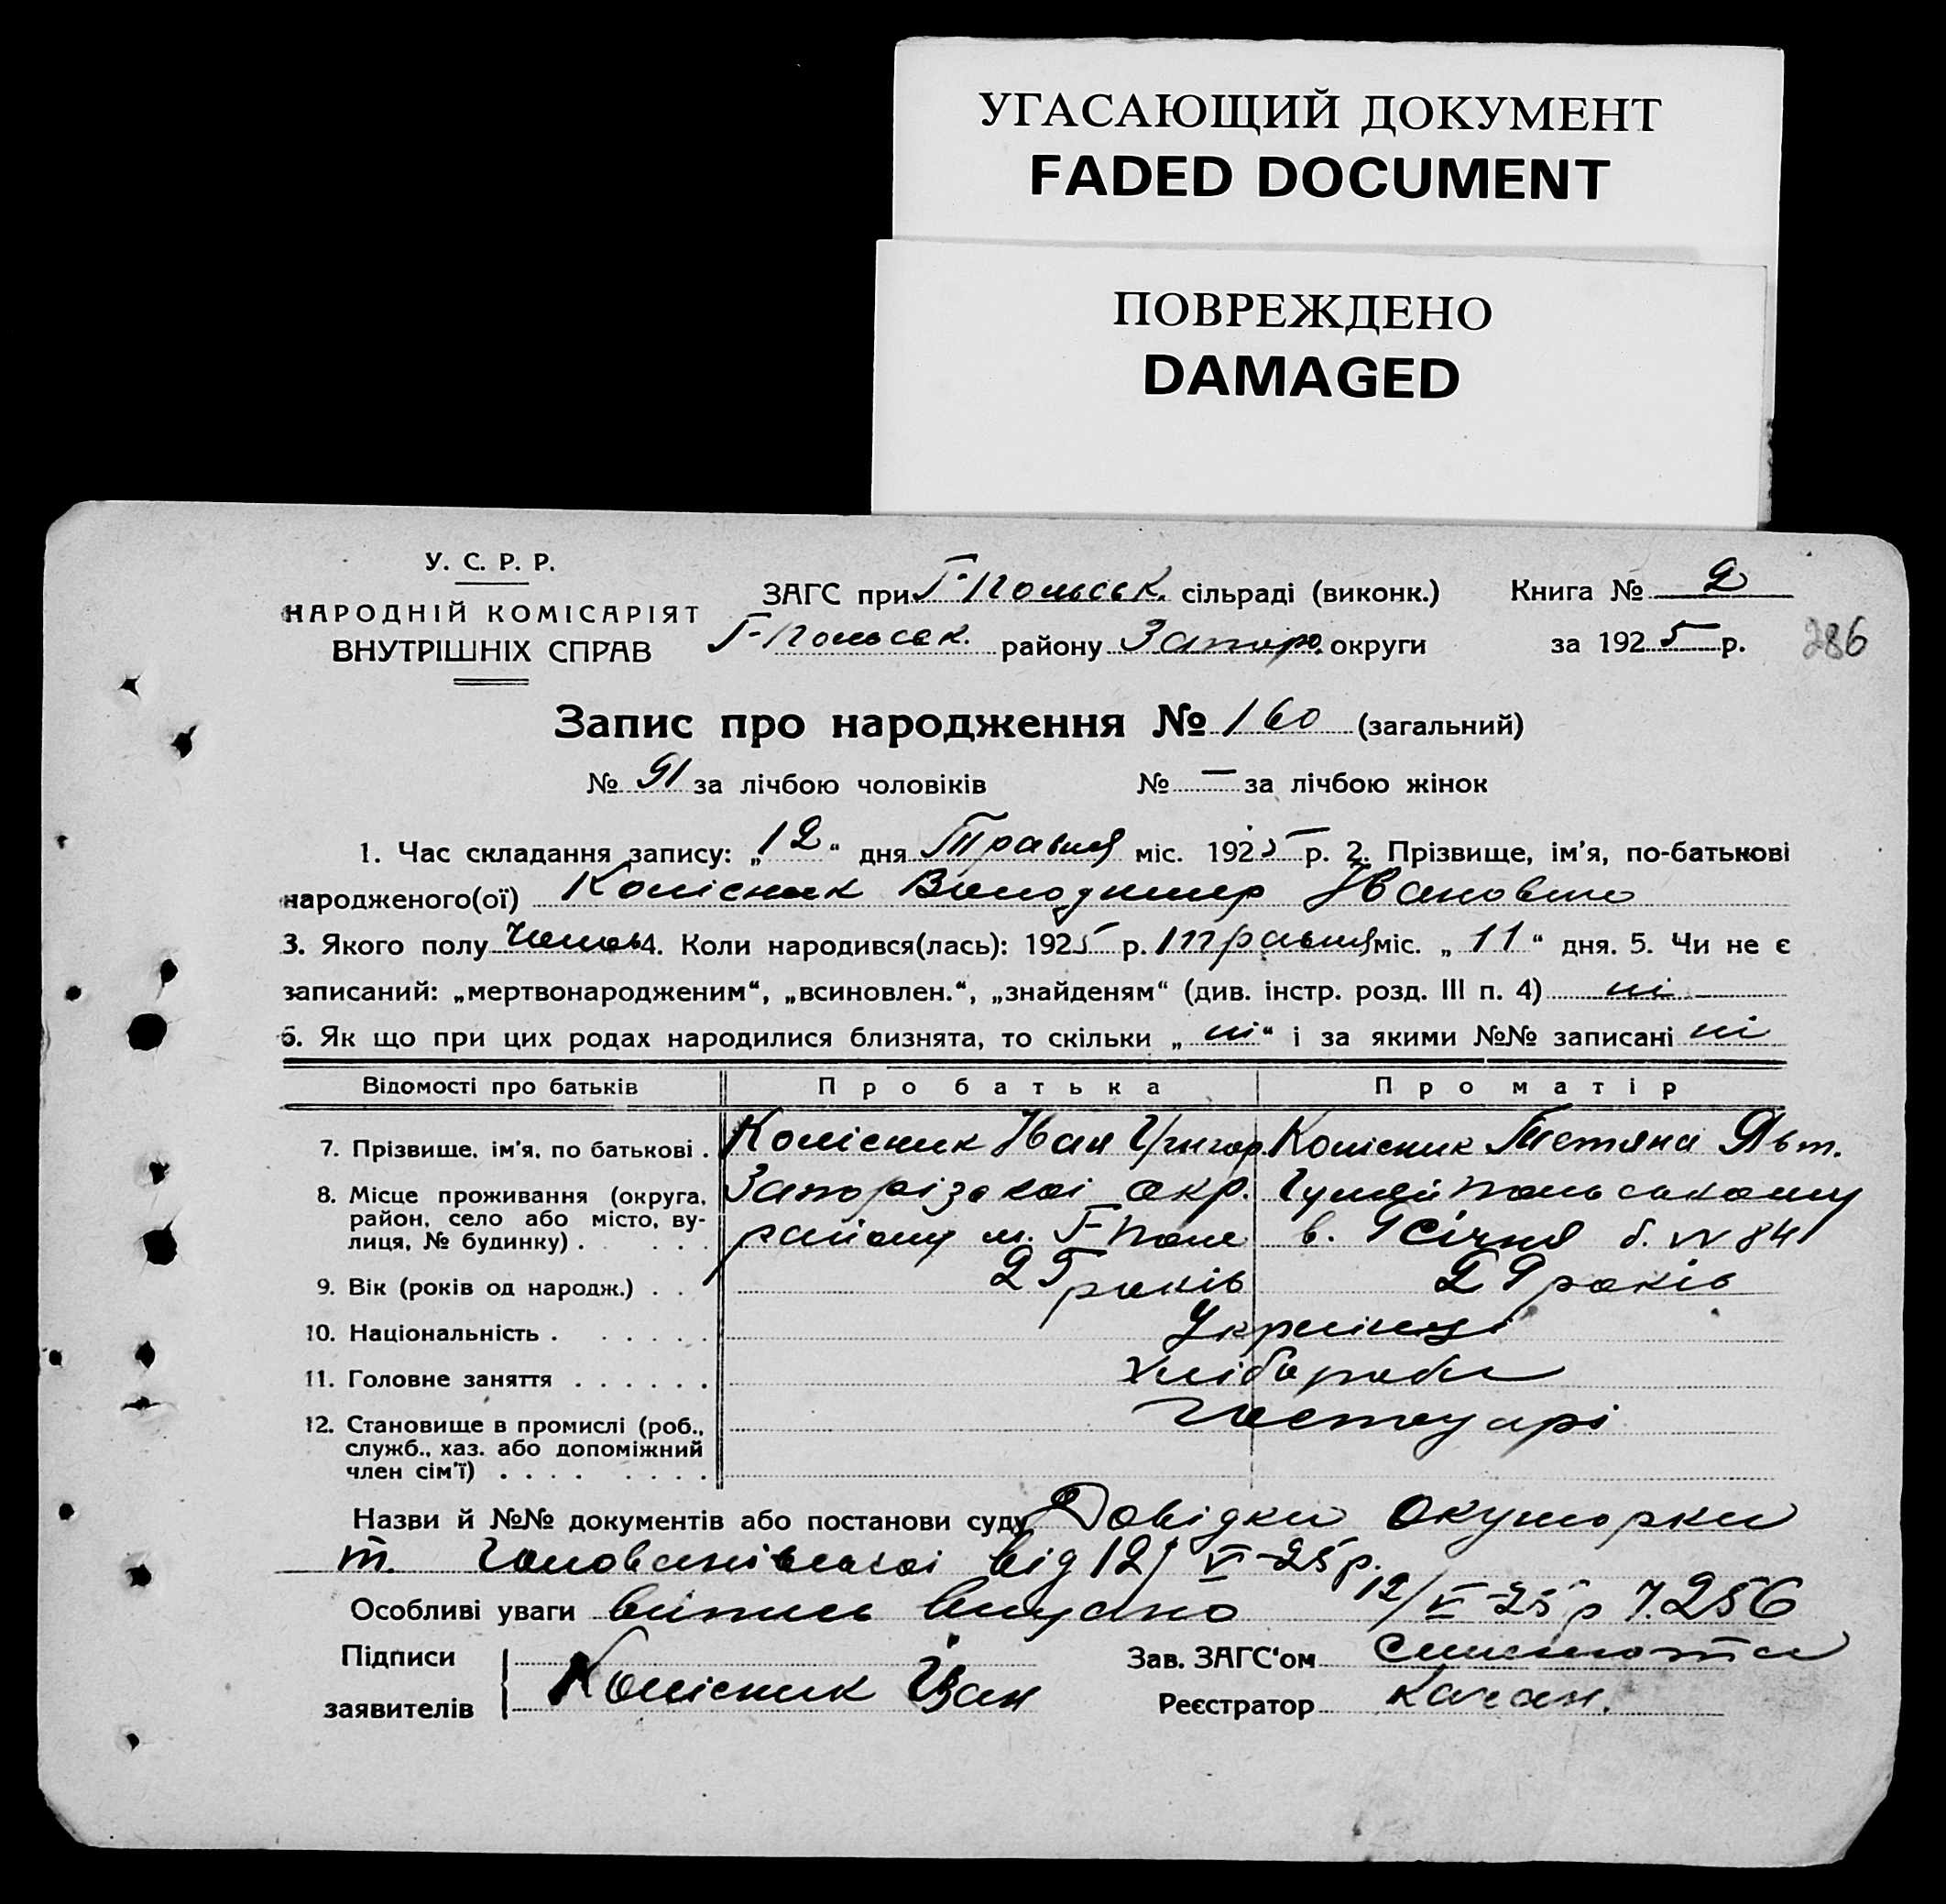 УГАСАЮЩИЙ ДОКУМЕНТ
FADED DOCUMENT
ПОВРЕЖДЕНО
DAMAGED
У. С. Р. Р.
НАРОДНІЙ КОМІСАРІЯТ
ВНУТРІШНІХ СПРАВ
ЗАГС при Г-Польськ. сільраді (виконк.)
Г-Польськ. району Запор. округи
Книга № 2
за 1925 р.
286
Запис про народження № 160 (загальний)
№ 91 за лічбою чоловіків № — за лічбою жінок
1. Час складання запису: „12“ дня Травня міс. 1925 р. 2. Прізвище, ім’я, по-батькові
народженого(ої) Колісник Володимир Іванович
3. Якого полу Чолов 4. Коли народився(лась): 1925 р. травня міс. „11“ дня. 5. Чи не є
записаний: „мертвонародженим“, „всиновлен.“, „знайденям“ (див. інстр. розд. III п. 4) ні
6. Як що при цих родах народилися близнята, то скільки „ні“ і за якими №№ записані ні
Відомості про батьків Про батька Про матір
7. Прізвище, ім’я, по батькові . Колісник Іван Григор. Колісник Тетяна Явт.
8. Місце проживання (округа, Запорізької окр. Гуляйпольському
район, село або місто, ву-
лиця, № будинку) . . . . району м. Г-Поле в. 9 Січня б. № 84
9. Вік (років од народж.) . . 25 років 29 років
10. Національність . . . . . . Українці
11. Головне заняття . . . . . . хлібороби
12. Становище в промислі (роб., 
служб., хаз. або допоміжний
член сім’ї) . . . . . . . .
Назви й №№ документів або постанови суду Довідки окушорки
т. Голованівської від 12/V-25р.
Особливі уваги випись видано 12/V-25 р 256
Підписи
заявителів Колісник Іван
Зав. ЗАГС‘ом
Реєстратор Качан.